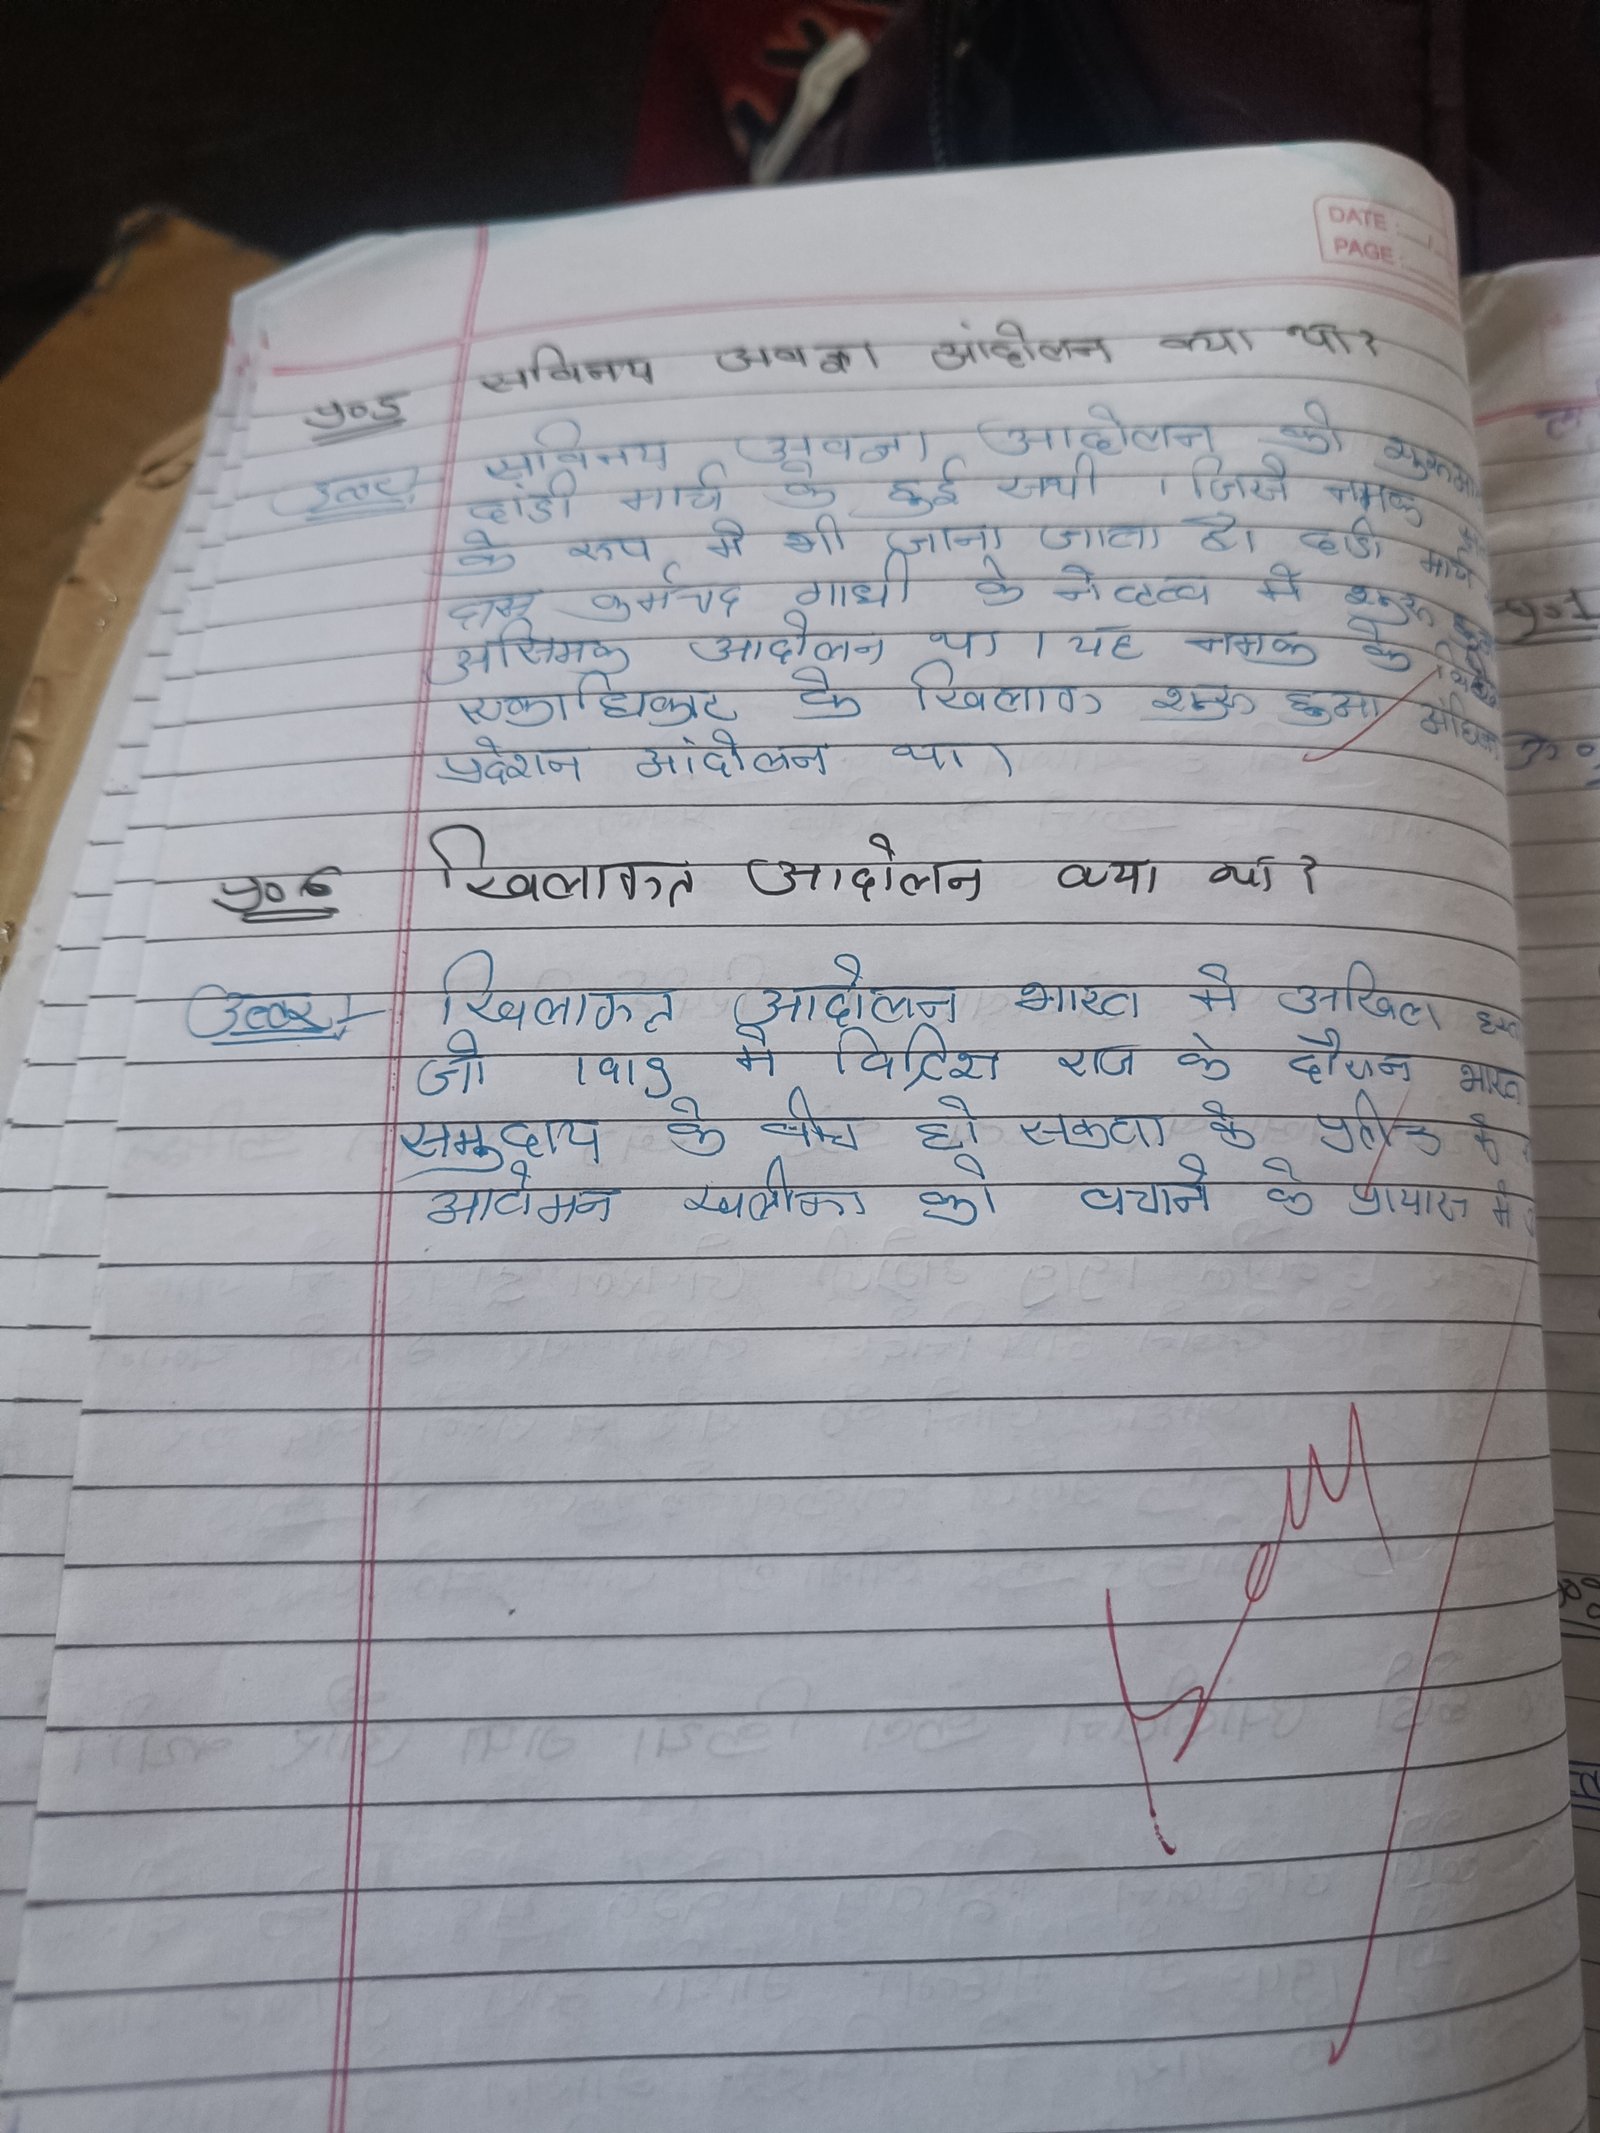 DATE :
PAGE :
प्र०5 सविनय अवज्ञा आंदोलन क्या था?
उत्तर:- सविनय अवज्ञा आदोलन की
दांडी मार्च के हुई सथी । जिसे नमक
के रूप में भी जाना जाता है। दाडी मार्च
कर्मचद गाधी के नेतत्व मे शुरू हुआ
आदोलन था । यह नमक के
एकाधिकार के खिलाफ शुरू हुआ
प्रदेशन आंदोलन था ।
प्र०6 खिलाफत आदोलन क्या था?
उत्तर :- खिलाफत आदोलन भारत मे अखिल
जो 1919 मे ब्रिटिश राज के दौरान भारत
समुदाय के बीच हो सकता के प्रतीक के
आटोमन खलीफा को बचाने के प्रायास मे